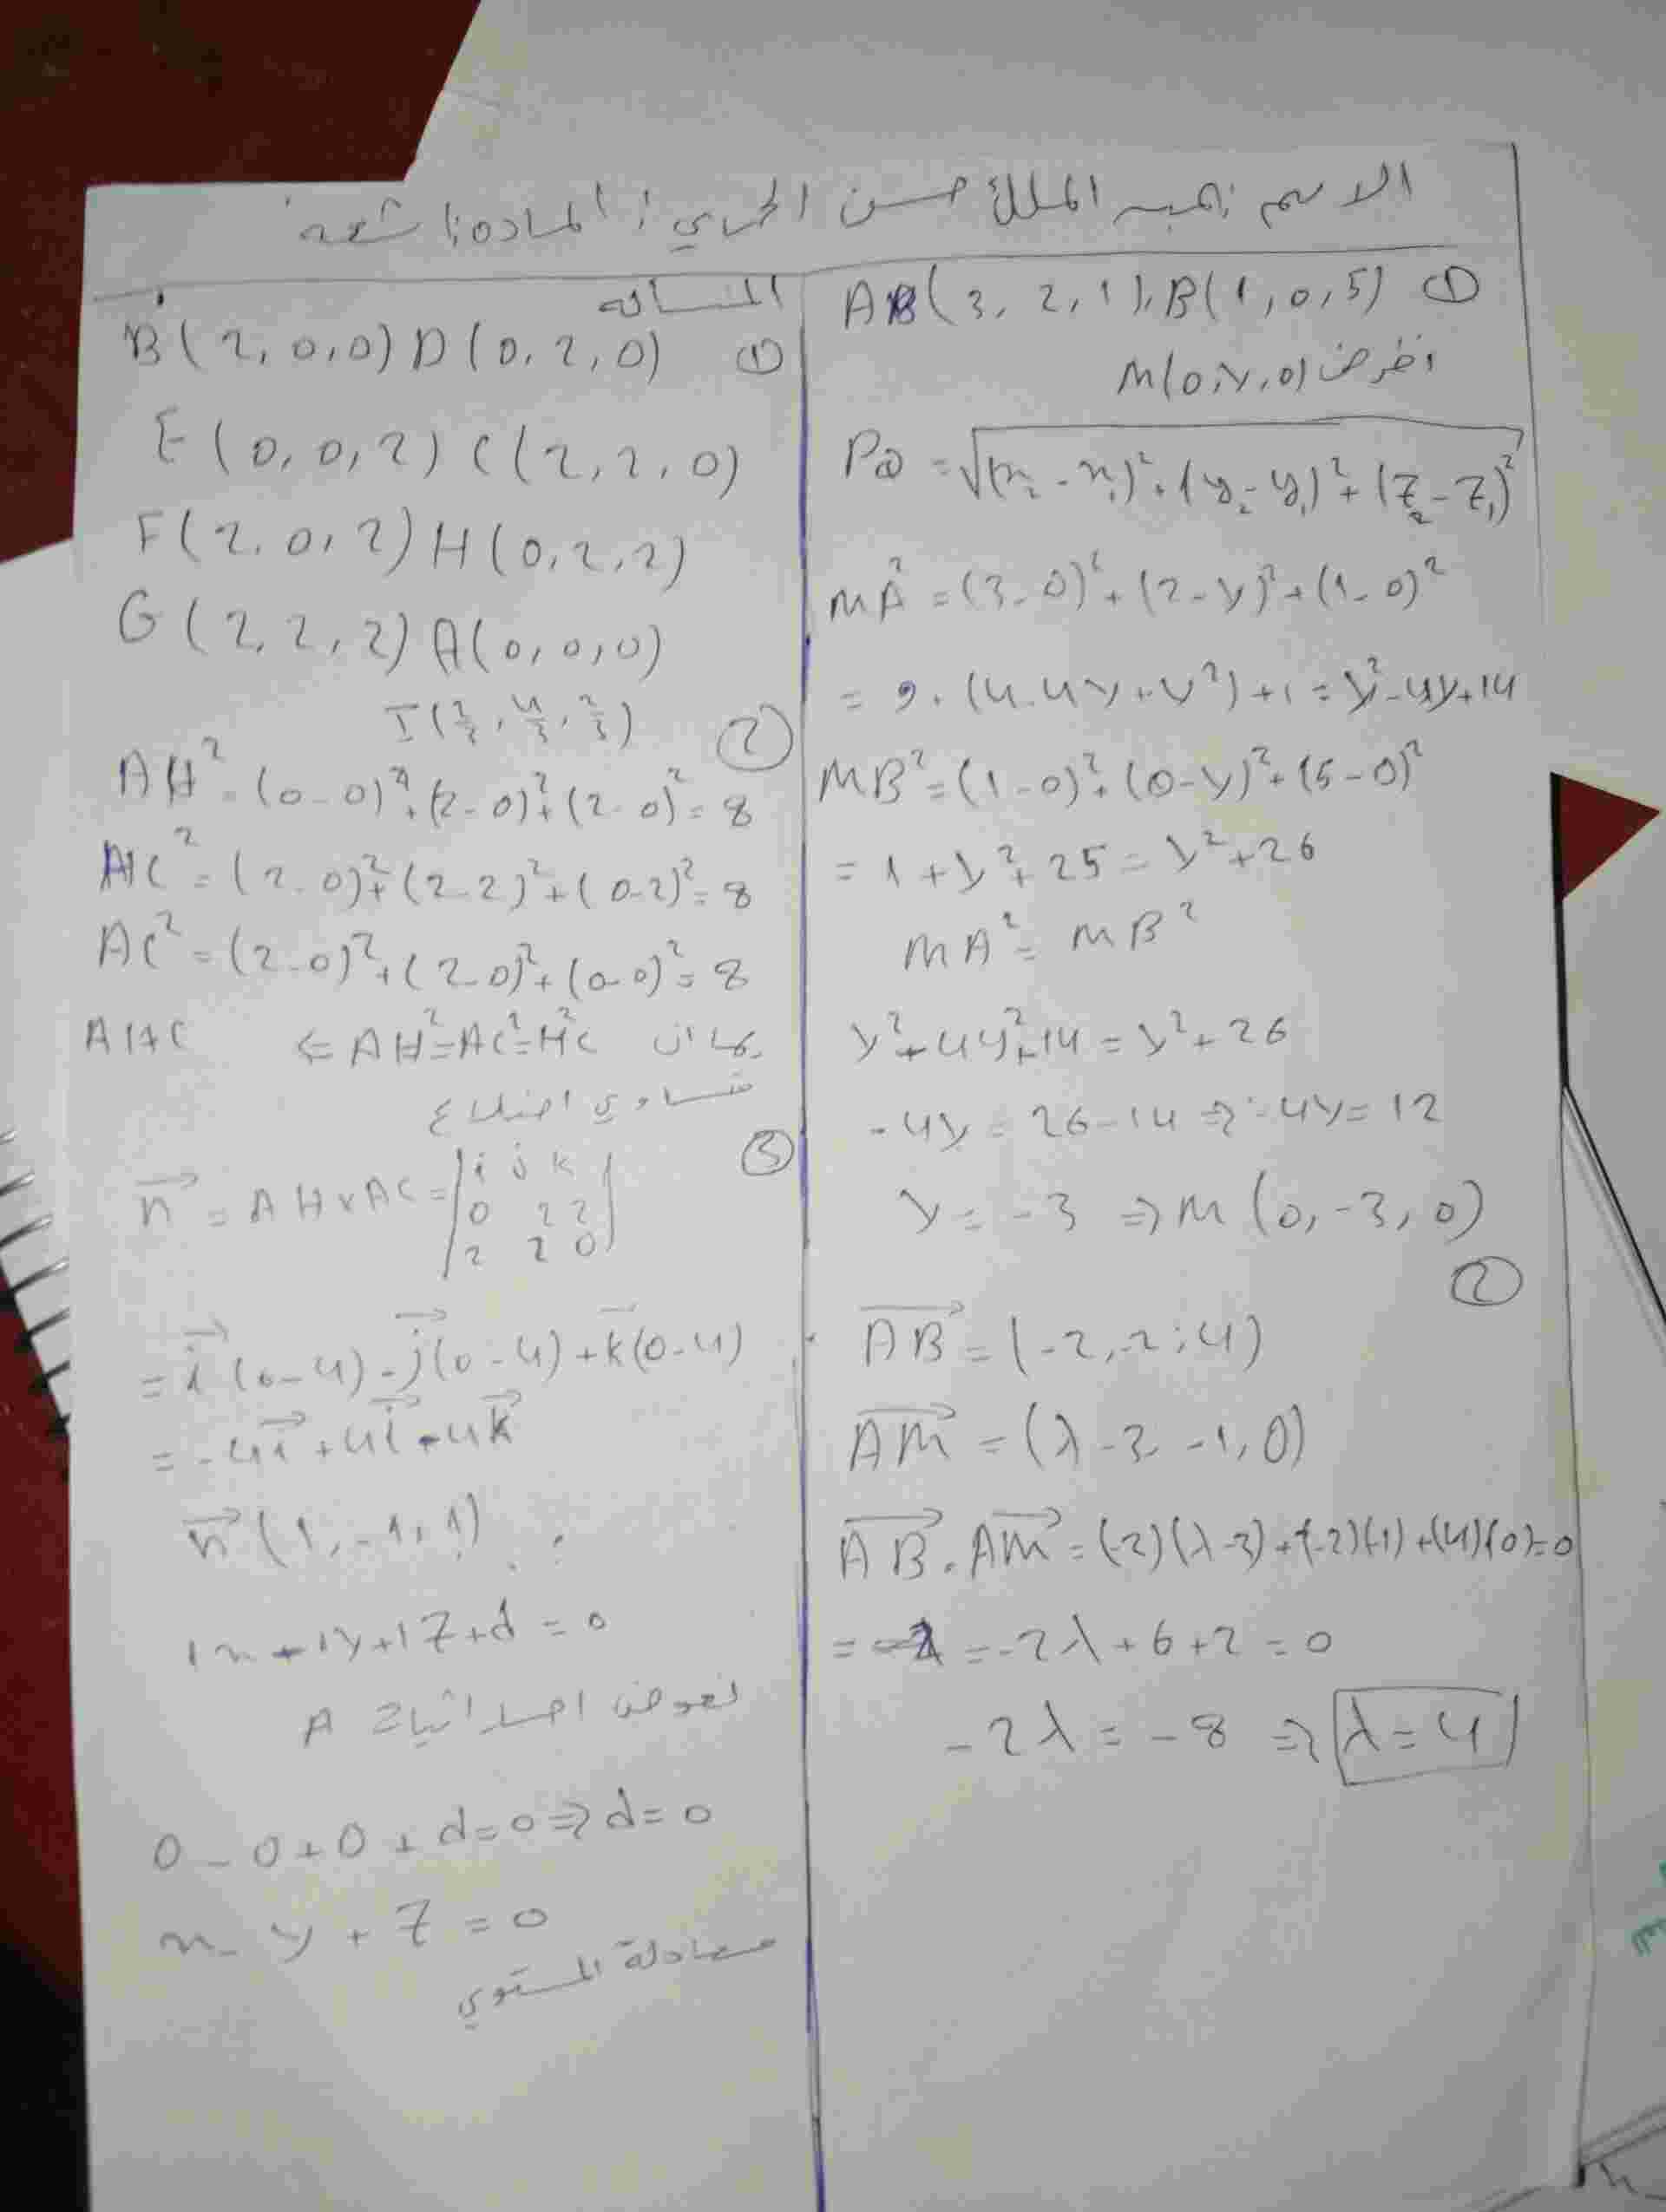 الاسم: عبد الملك حسن الحريري؛ المادة: أشعة
① AB(3, 2, 1), B(1, 0, 5)
نفرض M(0, y, 0)
PQ = √(x₂ - x₁)² + (y₂ - y₁)² + (z₂ - z₁)²
MA² = (3-0)² + (2-y)² + (1-0)²
= 9 + (4-4y+y²) + 1 = y²-4y+14
MB² = (1-0)² + (0-y)² + (5-0)²
= 1 + y² + 25 = y² + 26
MA² = MB²
y² + 4y² + 14 = y² + 26
-4y = 26-14 ⇒ -4y = 12
y = -3 ⇒ M(0, -3, 0)
②
AB = (-2, -2, 4)
AM = (λ-3, -1, 0)
AB . AM = (-2)(λ-3) + (-2)(-1) + (4)(0) = 0
= = -2λ + 6 + 2 = 0
-2λ = -8 ⇒ λ = 4
المسألة
B(2, 0, 0) D(0, 2, 0) ①
E(0, 0, 2) C(2, 2, 0)
F(2, 0, 2) H(0, 2, 2)
G(2, 2, 2) A(0, 0, 0)
I(2/3, 4/3, 2/3)
②
AH² = (0-0)² + (2-0)² + (2-0)² = 8
HC² = (2-0)² + (2-2)² + (0-2)² = 8
AC² = (2-0)² + (2-0)² + (0-0)² = 8
بما ان AH² = AC² = H²C ⇐ AHC
متساوي اضلاع
③
n = AH × AC = |i j k
0 2 2
2 2 0|
= i(0-4) - j(0-4) + k(0-4)
= -4i + 4j - 4k
n(1, -1, 1)
1x - 1y + 1z + d = 0
نعوض احداثيات A
0 - 0 + 0 + d = 0 ⇒ d = 0
x - y + z = 0
معادلة المستوي